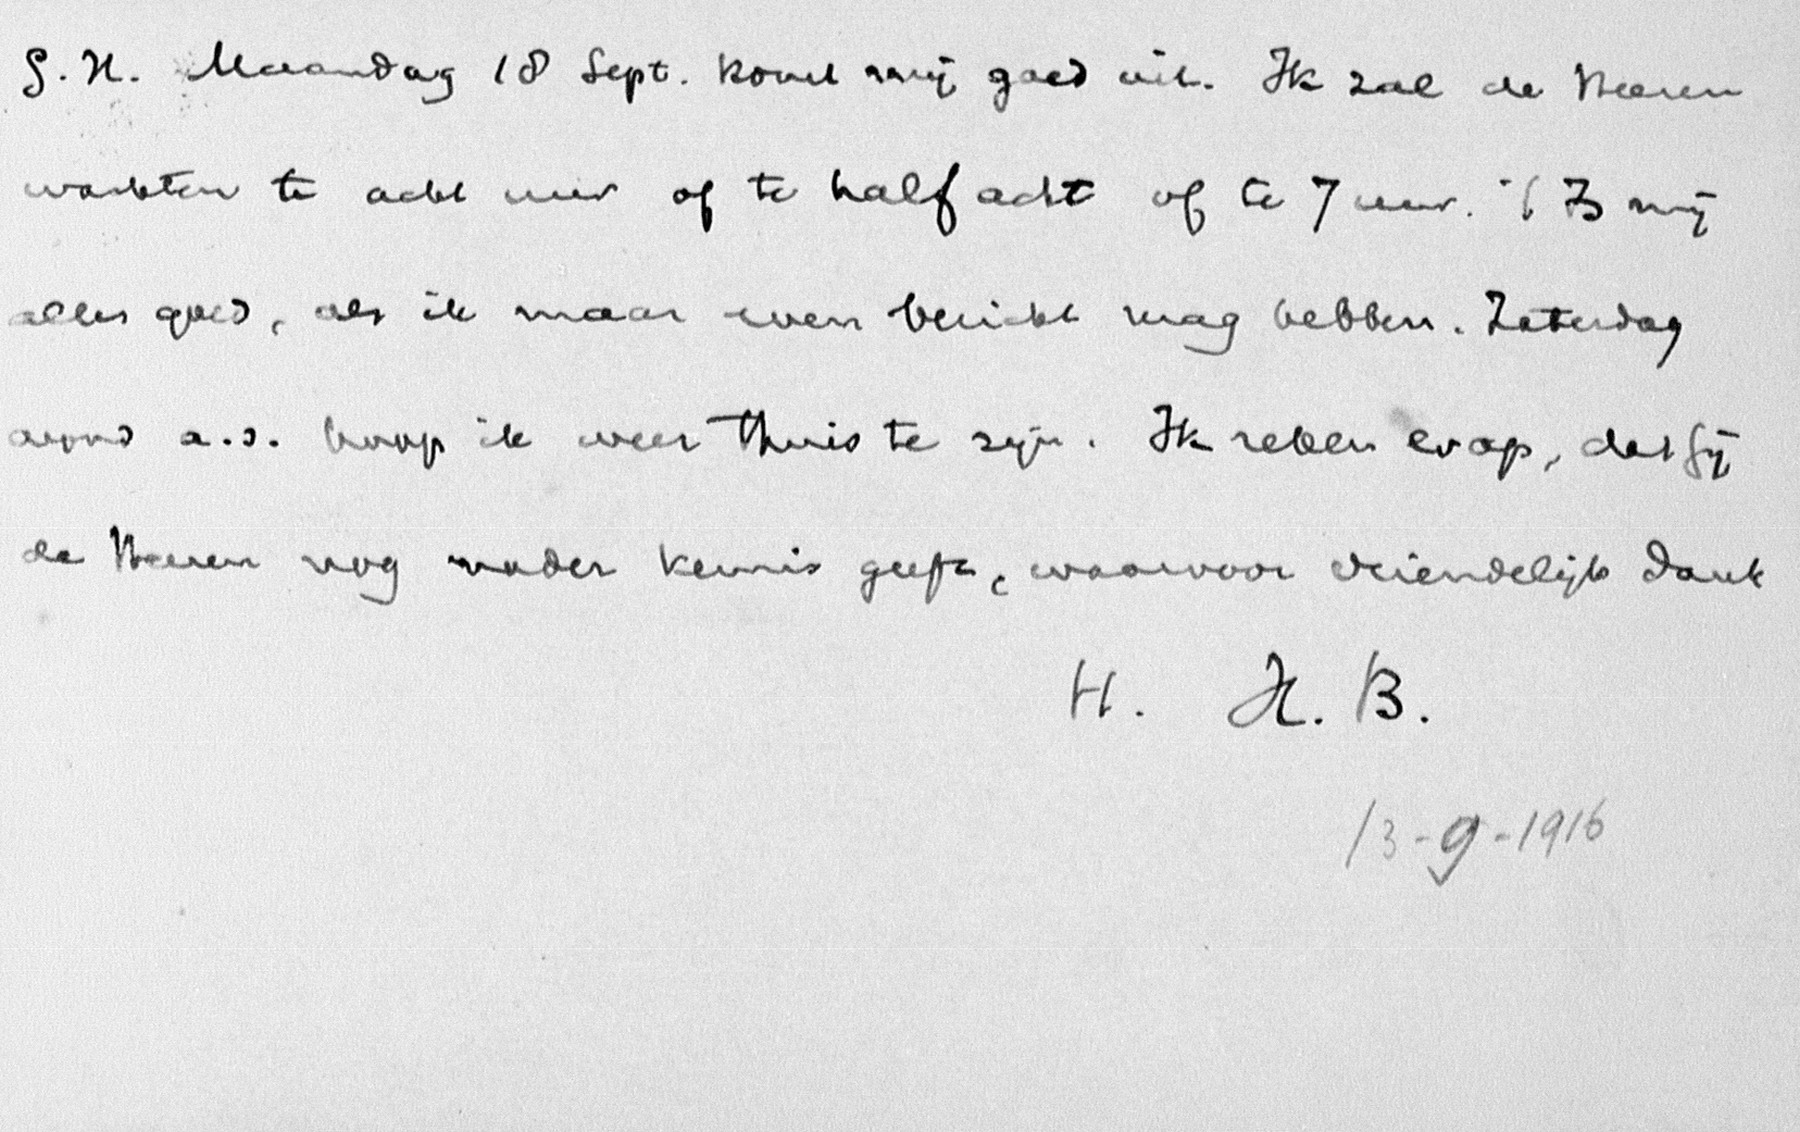 G. H. Maandag 18 Sept. komt mij goed uit. Ik zal de Heeren
wachten te acht uur of te half acht of te 7 uur. 't Is mij
alles goed, als ik maar even bericht mag hebben. Zaterdag
avond a.s. hoop ik weer thuis te zijn. Ik reken erop, dat gij
de Heeren nog nader kennis geeft, waarvoor vriendelijk dank
H. H. B.
13-9-1916